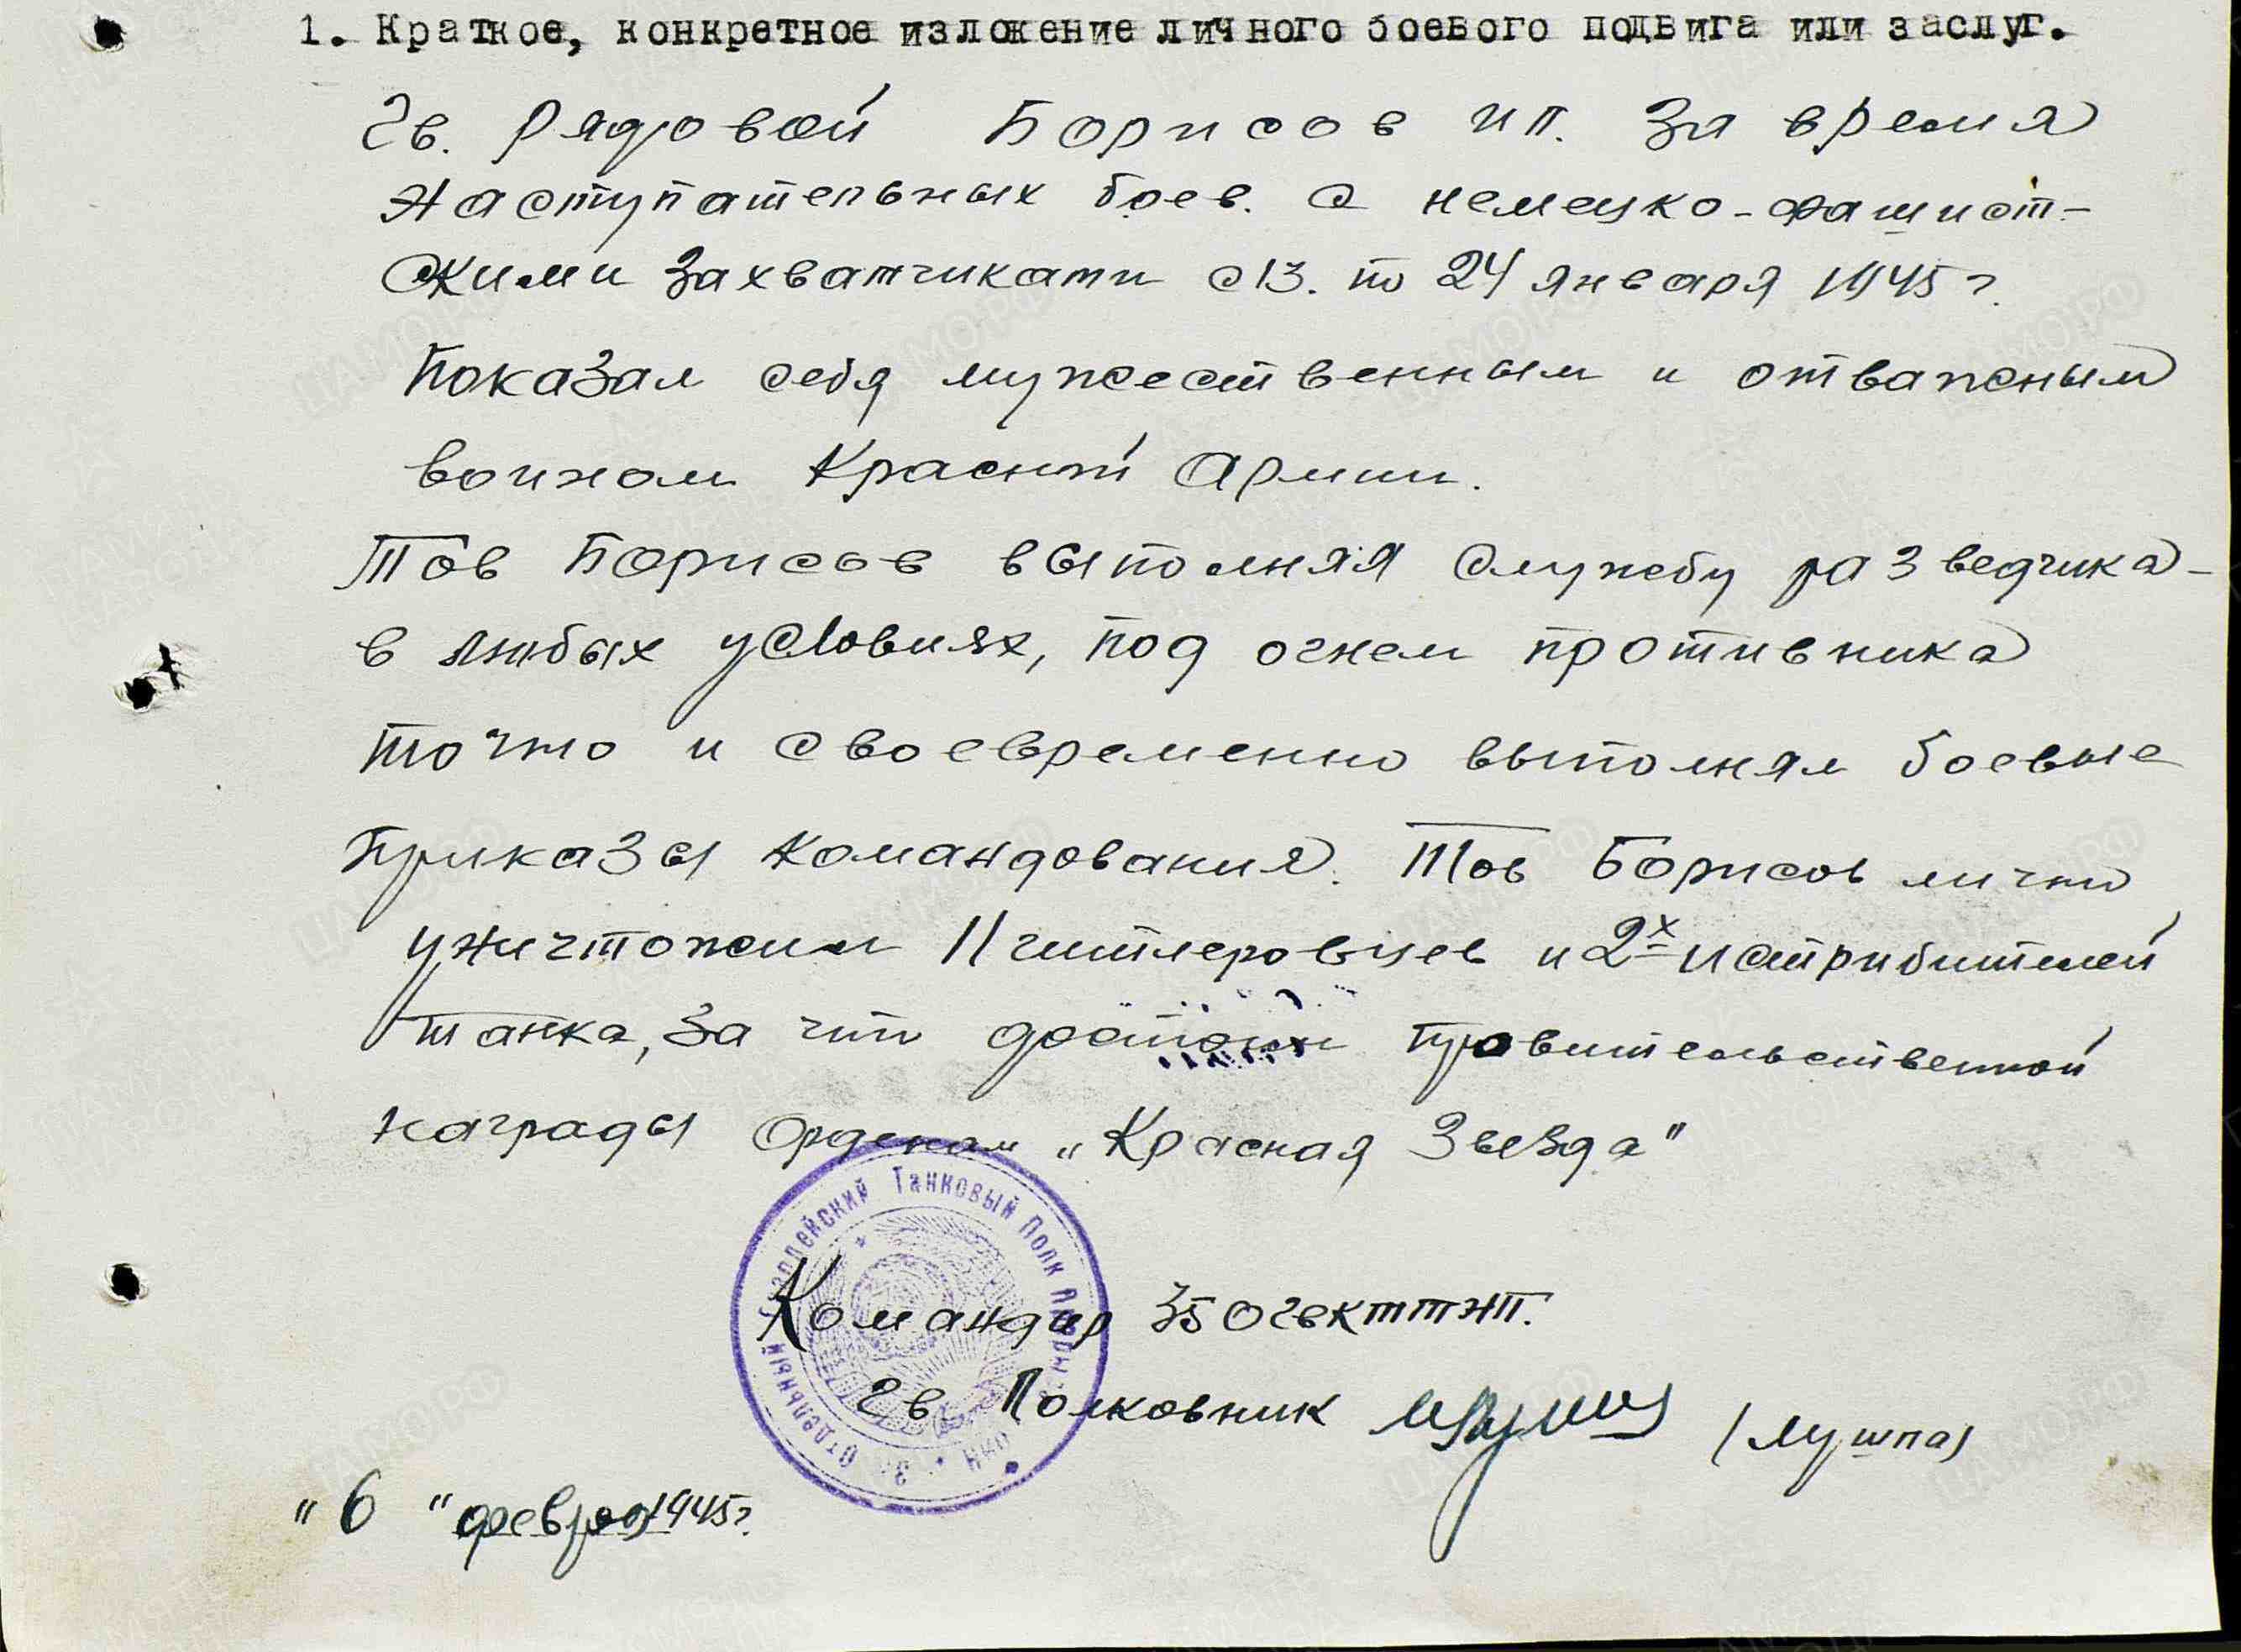 1. Краткое, конкретное изложение личного боевого подвига или заслуг.
Гв. Рядовой Борисов И П. За время
Наступательных боев. с немецко-фашист-
скими захватчиками с 13. по 24 января 1945 г.
Показал себя мужественным и отважным
воином Красной Армии.
Тов Борисов выполняя службу разведчика-
в любых условиях, под огнем противника
точно и своевременно выполнял боевые
приказы командования. Тов Борисов лично
уничтожил 11 гитлеровцев и 2х истрибителей
танка, за что достоин правительственной
награды Орденом „Красная Звезда"
Отдельный Гвардейский Танковый Полк
Командир 35
Гв Полковник (Лушпа)
"6" февраля 1945г.